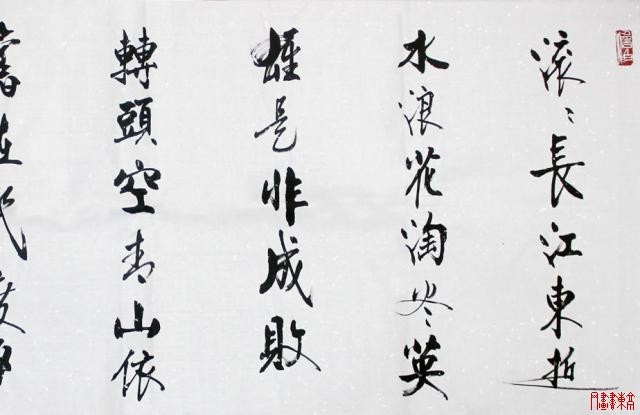 滚〻長江東逝
水浪花淘尽英
雄是非成敗
轉頭空青山依
舊在